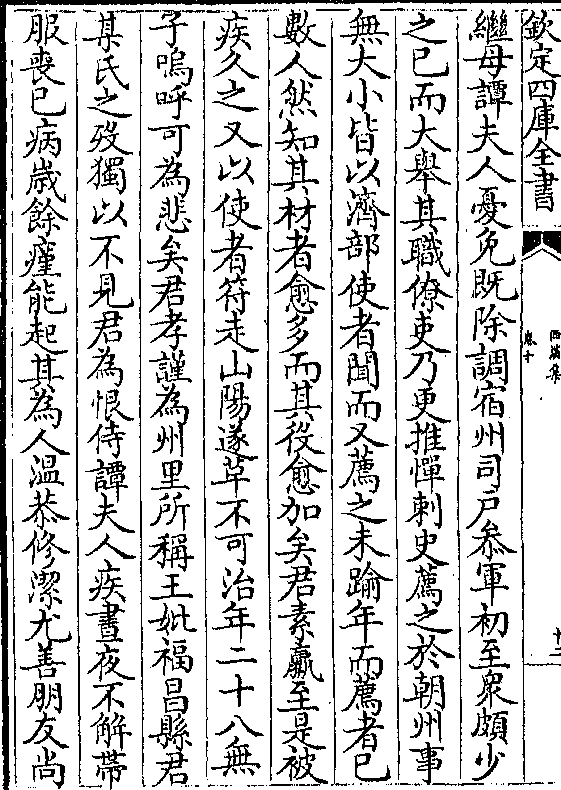 欽定四庫全書
繼母譚夫人憂免既除調宿州司戶叅軍初至衆頗少
之已而大舉其職僚吏乃更推憚刺史薦之於朝州事
無大小皆以濟部使者聞而又薦之未踰年而薦者已
數人然知其材者愈多而其役愈加矣君素羸至是被
疾久之又以使者符走山陽遂革不可治年二十八無
子嗚呼可為悲矣君孝謹為州里所稱王妣福昌縣君
某氏之歿獨以不見君為恨侍譚夫人疾晝夜不解帶
服喪已病歳餘瘽能起其為人温恭修潔尤善朋友尚
卷十
十二